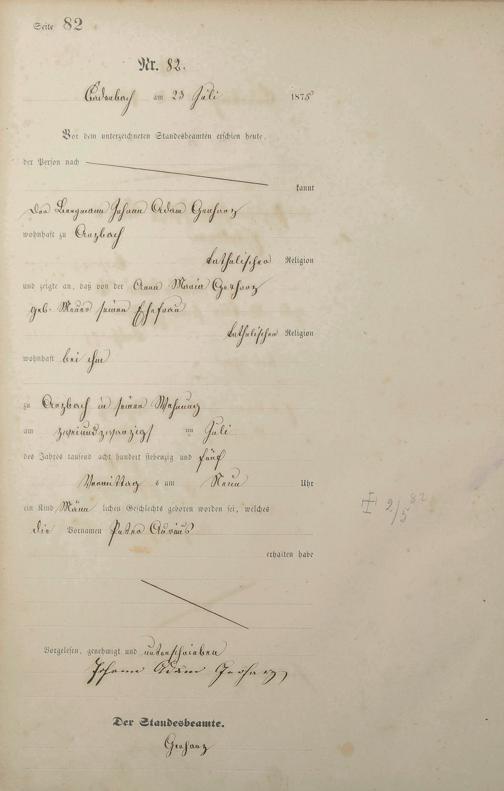 Seite 82
Nr. 82.
Cadenbach am 23 Juli 1875
Vor dem unterzeichneten Standesbeamten erschien heute,
der Person nach
kannt
Der Bergmann Johann Adam Gerharz
wohnhaft zu Arzbach
katholischer Religion
und zeigte an, daß von der Anna Maria Gerharz
geb. Meuer seiner Ehefrau
katholischer Religion
wohnhaft bei ihm
zu Arzbach in seiner Wohnung
am zweiundzwanzigst im Juli
des Jahres tausend acht hundert siebenzig und fünf
Vormittag s um Neun Uhr
ein Kind Männ lichen Geschlechts geboren worden sei, welches
die Vornamen Peter
erhalten habe
Vorgelesen, genehmigt und unterschrieben
Johann Adam Gerharz
Der Standesbeamte.
Gerharz
2/5 82